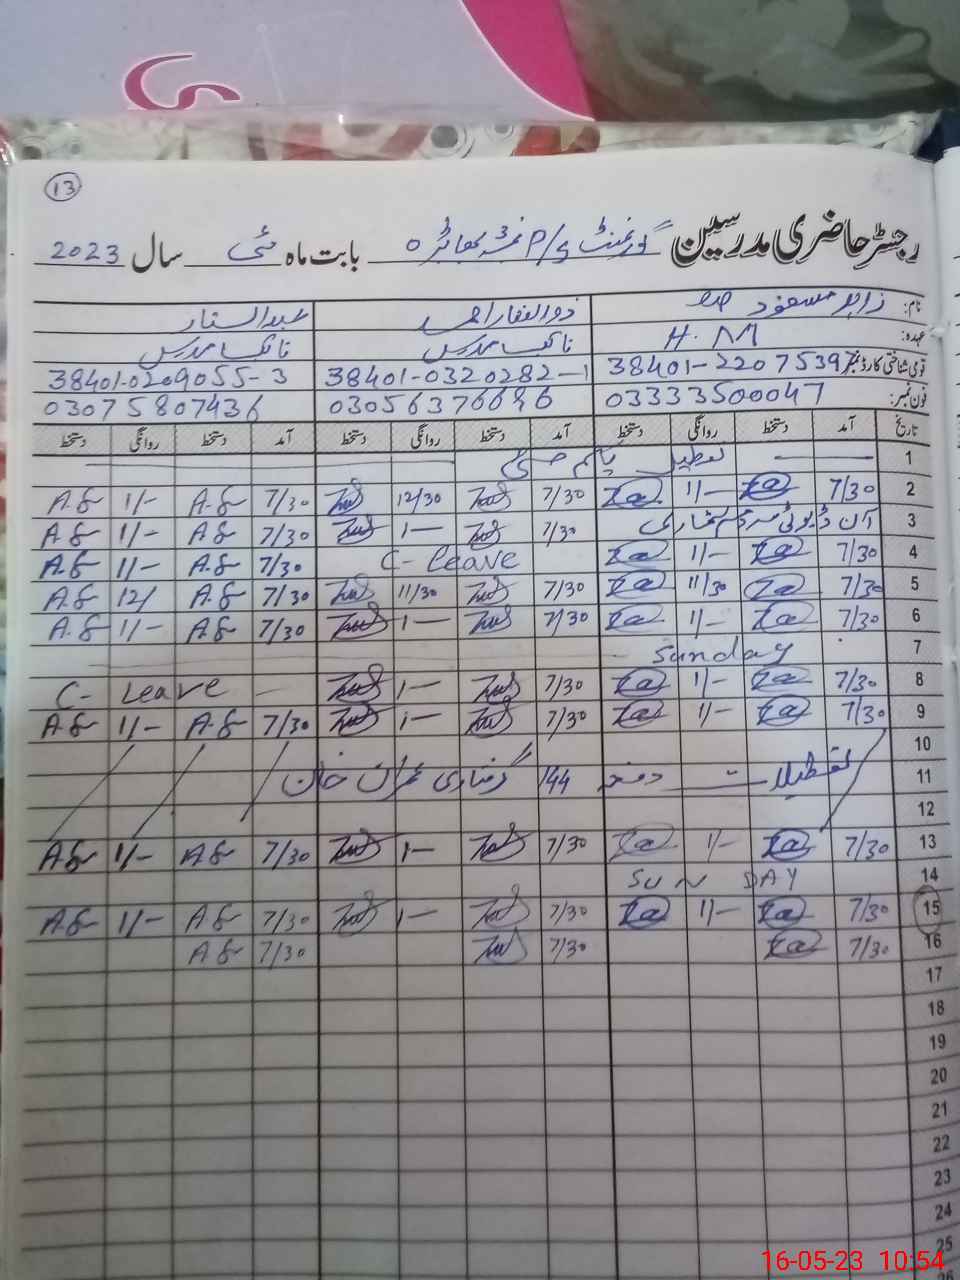 13
رجسٹر حاضری مدرسین گورنمنٹ P/S نمبر 3 بابت ماہ مئی سال 2023
نام: زاہد مسعود ذوالفقار احمد عبدالستار
عہدہ: H.M نائب مدرس نائب مدرس
قومی شناختی کارڈ نمبر 38401-2207539 38401-0320282-1 38401-0209055-3
فون نمبر: 03333500047 03056376696 03075807436
تاریخ آمد دستخط روانگی دستخط آمد دستخط روانگی دستخط آمد دستخط روانگی دستخط
1 تعطیل یکم مئی
2 7/30 1/- 7/30 12/30 7/30 A.S 1/- A.S
3 آن ڈیوٹی مردم شماری 7/30 1- 7/30 A.S 1/- A.S
4 7/30 1/- C-leave 7/30 A.S 1/- A.S
5 7/30 11/30 7/30 11/30 7/30 A.S 12/ A.S
6 7/30 1/- 7/30 1- 7/30 A.S 1/- A.S
7 Sunday
8 7/30 1/- 7/30 1- C- Leave
9 7/30 1/- 7/30 1- 7/30 A.S 1/- A.S
10
11 تعطیلات دفعہ 144 گرفتاری عمران خان
12
13 7/30 1/- 7/30 1- 7/30 A.S 1/- A.S
14 SUN DAY
15 7/30 1/- 7/30 1- 7/30 A.S 1/- A.S
16 7/30 7/30 7/30 A.S
17
18
19
20
21
22
23
24
25
16-05-23 10:54